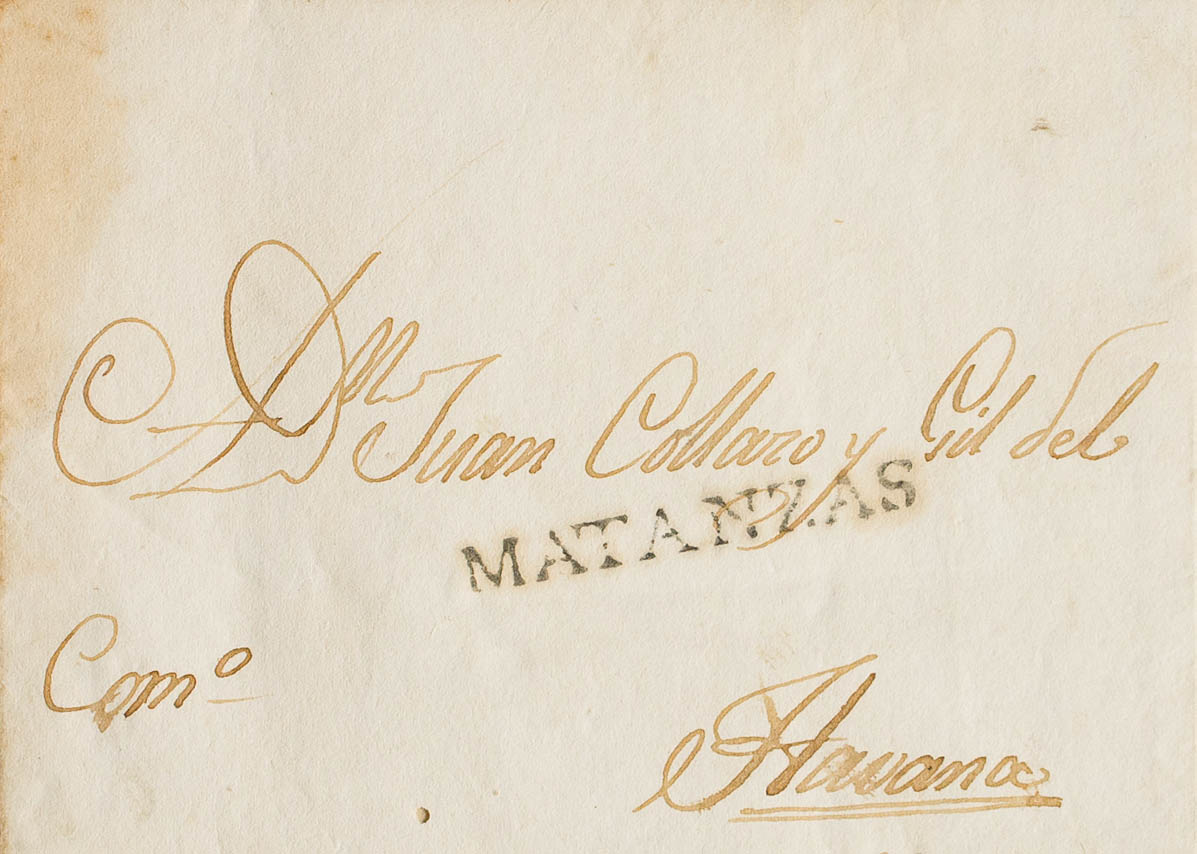 Juan Collazo y Gil del
MATANZAS
Com°
Havana